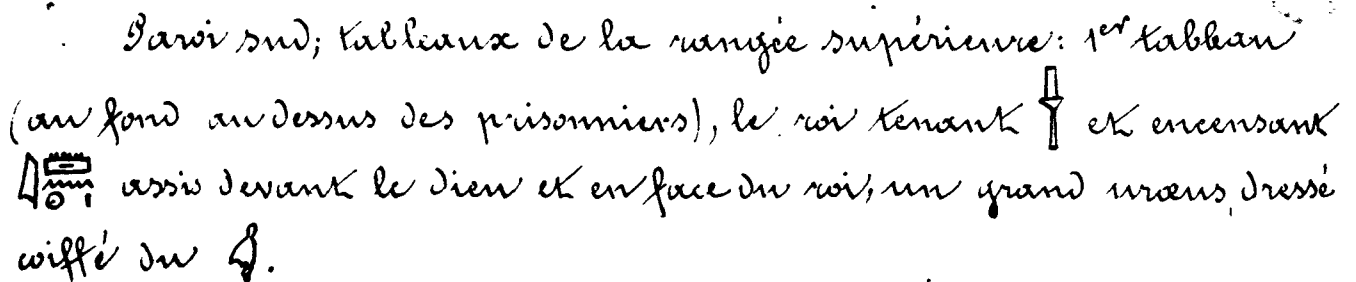 Paroi sud; tableaux de la rangée supérieure: 1er tableau
(au fond au dessus des prisonniers), le roi tenant 𓌂 et encensant
𓇋𓏠𓈖𓇳𓏤 assis devant le dieu et en face du roi, un grand uræus, dressé
coiffé du .